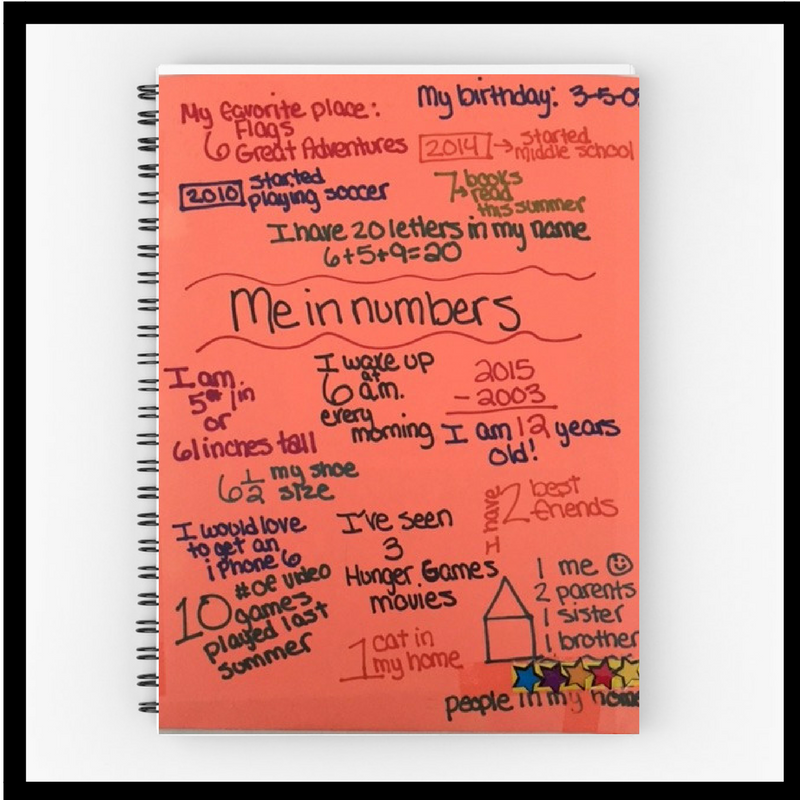 My favorite place:
6 Flags
Great Adventures
My birthday: 3-5-0
2014 → started
middle school
2010 started
playing soccer
7 → books
read
this summer
I have 20 letters in my name
6+5+9=20
Me in numbers
I am
5ft 1in
or
61 inches tall
I wake up
at
6 a.m.
every
morning
2015
- 2003
I am 12 years
old!
6 1/2 my shoe
size
I have 2 best
friends
I would love
to get an
iPhone 6
I've seen
3
Hunger Games
movies
10 # of video
games
played last
summer
1 cat in
my home
1 me ☺
2 parents
1 sister
1 brother
people in my home